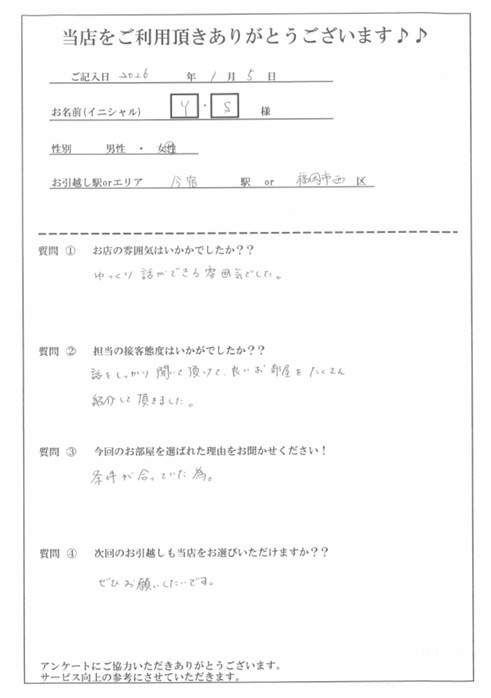 当店をご利用頂きありがとうございます♪♪
ご記入日 2026 年 1 月 5 日
お名前(イニシャル) Y ・ S 様
性別 男性 ・ 女性
お引越し駅orエリア 今宿 駅 or 福岡市西 区
質問 ① お店の雰囲気はいかかでしたか??
ゆっくり話ができる雰囲気でした。
質問 ② 担当の接客態度はいかがでしたか??
話をしっかり聞いて頂けて、良いお部屋をたくさん
紹介して頂きました。
質問 ③ 今回のお部屋を選ばれた理由をお聞かせください!
条件が合っていた為。
質問 ④ 次回のお引越しも当店をお選びいただけますか??
ぜひお願いしたいです。
アンケートにご協力いただきありがとうございます。
サービス向上の参考にさせていただきます。